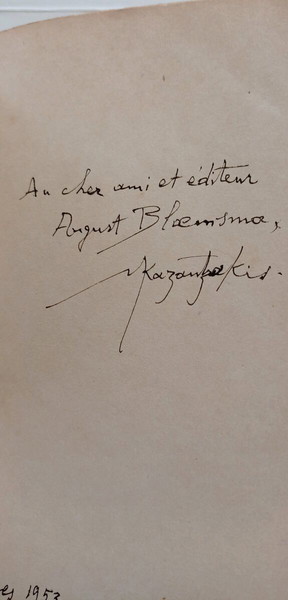 Au cher ami et éditeur
August Blaemsma,
Kazantzakis.
1953